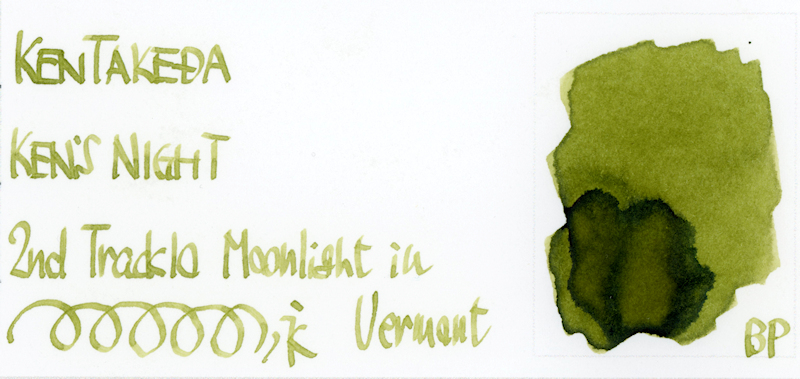 KENTAKEDA
KEN'S NIGHT
2nd Tradslo Moonlight in
Vermont
BP